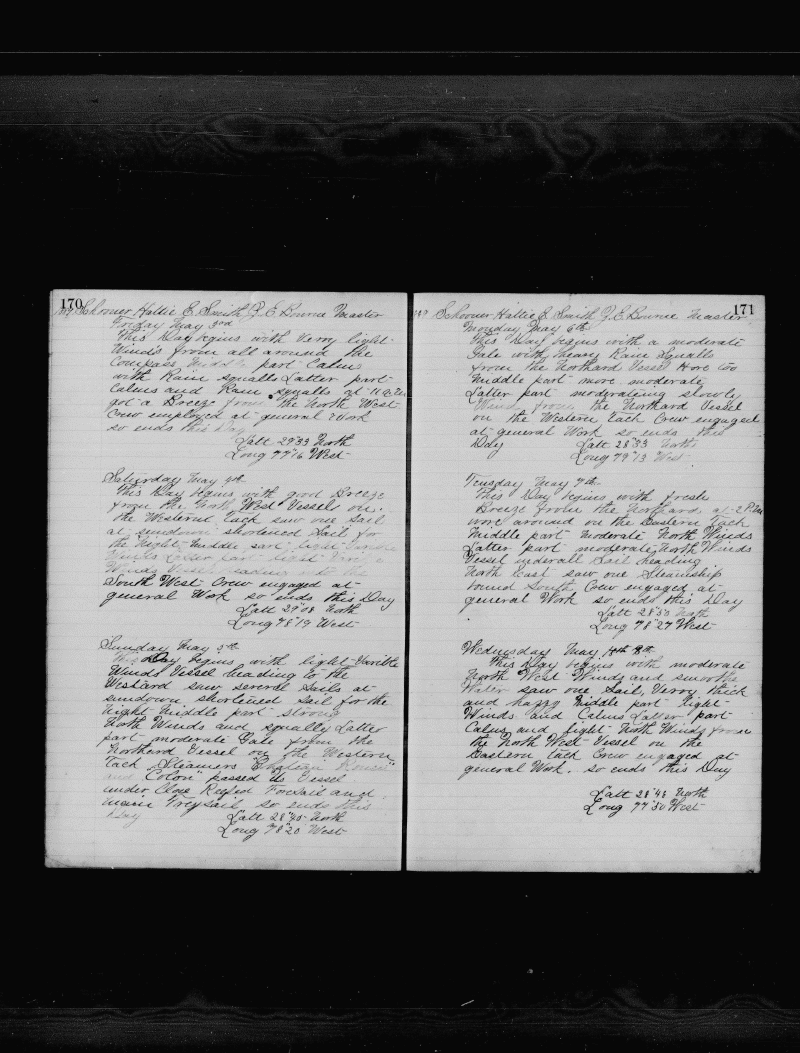 170
Schooner Hattie E Smith Z. E Bourne Master
Friday May 3rd
This Day begins with Verry light
Winds from all around the
Compass Middle part Calm
with Rain Squalls Latter part
Calms and Rain squalls at
got a Breeze from the North West
Crew employed at general Work
so ends this Day
Latt 29"33 North
Long 77"16 West
Saturday May 4th
This Day begins with good Breeze
from the North West Vessel on
the Western Tack saw one Sail
at sundown shortened Sail for
the Night Middle part light
Winds Vessel heading into the
South West Crew engaged at
general Work so ends this Day
Latt 29"08 North
Long 78"19 West
Sunday May 5th
This Day begins with light Varible
Winds Vessel heading to the
Westard saw several Sails at
sundown shortened Sail for the
Night Middle part strong
North Winds and squally Latter
part moderate Gale from the
Northard Vessel on the Western
Tack Steamers
and Colon" passed us Vessel
under Close Reefed Foresail and
main Treysail so ends this
Day
Latt 28"40 North
Long 78"20 West
171
Schooner Hattie E Smith Z. E Bourne Master
Monday May 6th
This Day begins with a moderate
Gale with heavy Rain Squalls
from the Northard Vessel Hove too
Middle part more moderate
Latter part moderating slowly
Wind from the Northard Vessel
on the Western Tack Crew engaged
at general Work so ends this
Day
Latt 28"33 North
Long 79"13 West
Tuesday May 7th
This Day begins with fresh
Breeze from the Northard at 2 P.M.
wore around on the Eastern Tack
Middle part moderate North Winds
Latter part moderate North Winds
Vessel under all Sail heading
North East saw one Steamship
bound South Crew engaged at
general Work so ends this Day
Latt 28"50 North
Long 78"27 West
Wednesday May 8th
This Day begins with moderate
North West Winds and smooth
Water saw one Sail Verry thick
and hazzy Middle part light
Winds and Calms Latter part
Calms and light North Winds from
the North West Vessel on the
Eastern Tack Crew engaged at
general Work. so ends this Day
Latt 28"43 North
Long 77"50 West